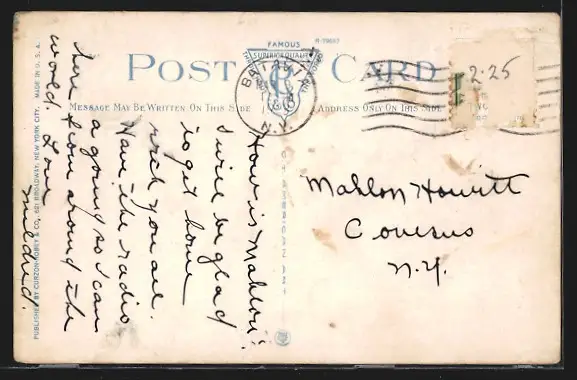 FAMOUS
R-79687
SUPERIOR QUALITY
POST CARD
MESSAGE MAY BE WRITTEN ON THIS SIDE
ADDRESS ONLY ON THIS SIDE
BATAVIA
N.Y.
2.25
How is Mahlon?
I will be glad
to get home
with you all.
Have the radio
a going so I can
hear from around the
world. Love
Mildred.
Mahlon Howitt
Conesus
N.Y.
PUBLISHED BY CURZON-OBEY & CO., 621 BROADWAY, NEW YORK CITY. MADE IN U.S.A.